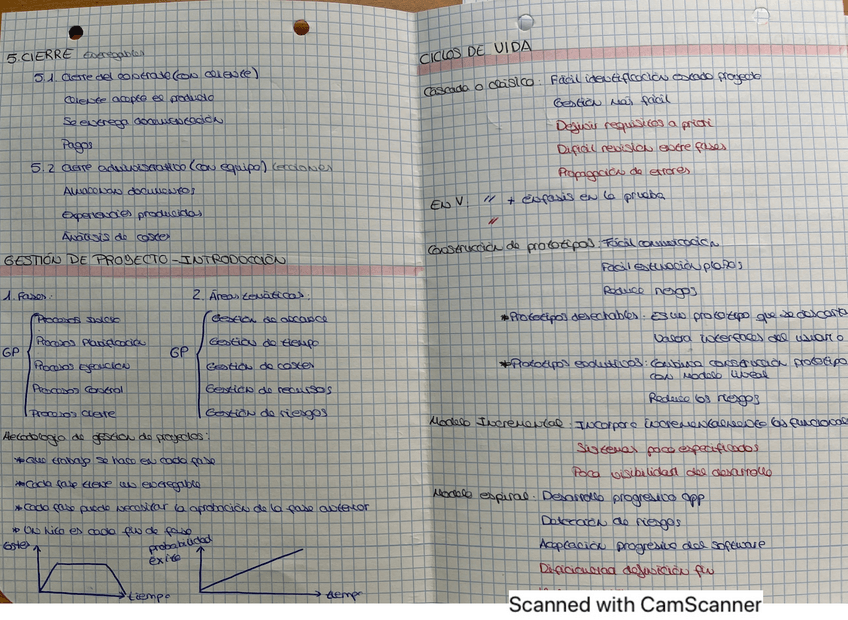 5. CIERRE entregables
5.1 Cierre del contrato (con cliente)
Cliente acepta el producto
Se entrega documentación
Pagos
5.2 Cierre administrativo (con equipo) lecciones
Almacenar documentos
Experiencias producidas
Análisis de costes
GESTIÓN DE PROYECTO - INTRODUCCIÓN
1. Fases:
GP
Procesos Inicio
Procesos Planificación
Procesos Ejecución
Procesos Control
Procesos Cierre
2. Áreas temáticas:
GP
Gestión de alcance
Gestión de tiempo
Gestión de costes
Gestión de recursos
Gestión de riesgos
Metodología de gestión de proyectos:
*Que trabajo se hace en cada fase
*Cada fase tiene un entregable
*Cada fase puede necesitar la aprobación de la fase anterior
*Un hito es cada fin de fase
costes
tiempo
probabilidad
éxito
tiempo
CICLOS DE VIDA
Cascada o clásico: Fácil identificación estado proyecto
Gestión más fácil
Definir requisitos a priori
Difícil revisión entre fases
Propagación de errores
En V: " + énfasis en la prueba
"
Construcción de prototipos: Fácil comunicación
Fácil estimación plazos
Reduce riesgos
*Prototipos desechables: Es un prototipo que se descarta
interfaces del usuario
*Prototipos evolutivos: Combina construcción prototipo
con modelo lineal
Reduce los riesgos
Modelo Incremental: Incorpora incrementalmente las funciones
Sistemas poco especificados
Poca visibilidad del desarrollo
Modelo espiral: Desarrollo progresivo app
Detección de riesgos
Aceptación progresiva del software
definición fin
Scanned with CamScanner